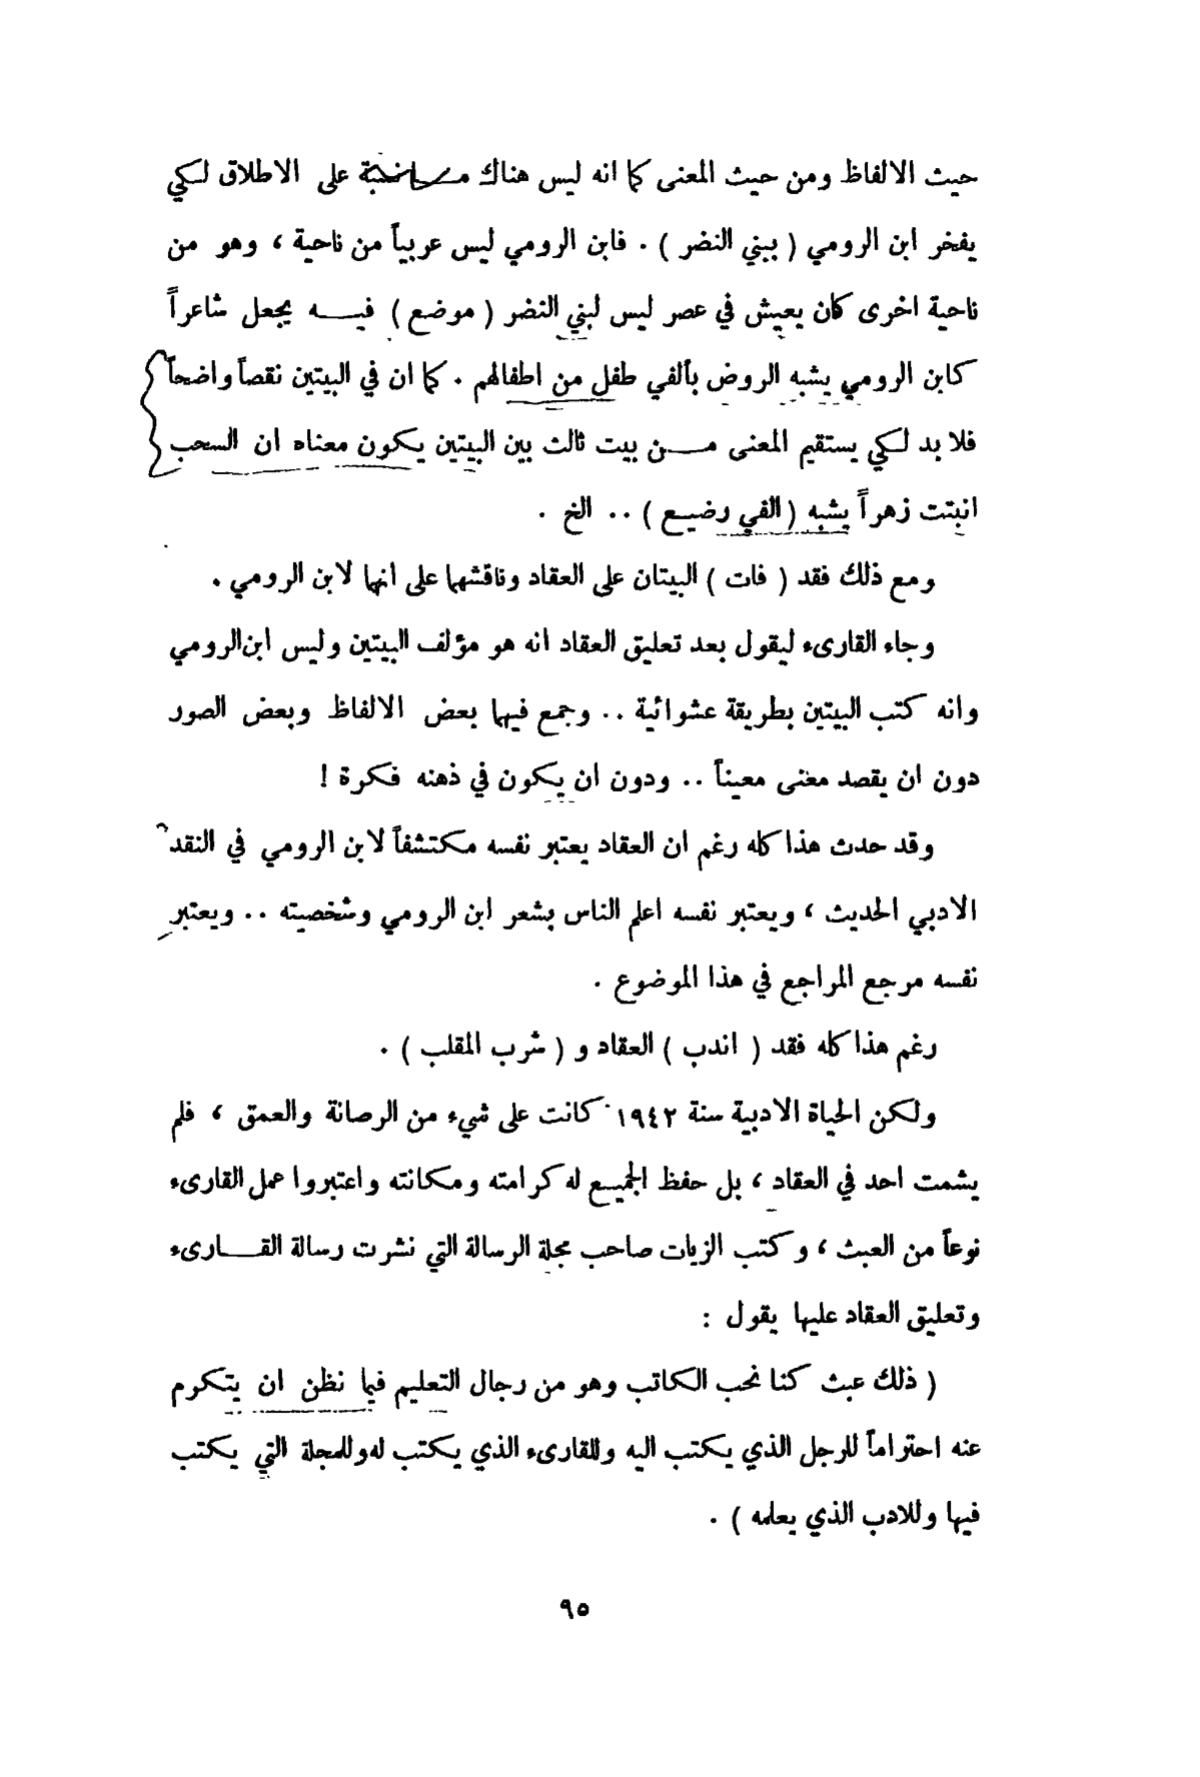 حيث الالفاظ ومن حيث المعنى كما انه ليس هناك مناسبة على الاطلاق لكي
يفخر ابن الرومي ( ببني النضر ) . فابن الرومي ليس عربياً من ناحية ، وهو من
ناحية اخرى كان يعيش في عصر ليس لبني النضر ( موضع ) فيه يجعل شاعراً
كابن الرومي يشبه الروض بألفي طفل من اطفالهم . كما ان في البيتين نقصاً واضحاً
فلا بد لكي يستقيم المعنى من بيت ثالث بين البيتين يكون معناه ان السحب
انبتت زهراً يشبه ( الفي رضيع ) .. الخ .
ومع ذلك فقد ( فات ) البيتان على العقاد وناقشهما على انهما لابن الرومي .
وجاء القارىء ليقول بعد تعليق العقاد انه هو مؤلف البيتين وليس ابن الرومي
وانه كتب البيتين بطريقة عشوائية .. وجمع فيهما بعض الالفاظ وبعض الصور
دون ان يقصد معنى معيناً .. ودون ان يكون في ذهنه فكرة !
وقد حدث هذا كله رغم ان العقاد يعتبر نفسه مكتشفاً لابن الرومي في النقد
الادبي الحديث ، ويعتبر نفسه اعلم الناس بشعر ابن الرومي وشخصيته .. ويعتبر
نفسه مرجع المراجع في هذا الموضوع .
رغم هذا كله فقد ( اندب ) العقاد و ( شرب المقلب ) .
ولكن الحياة الادبية سنة ١٩٤٢ كانت على شيء من الرصانة والعمق ، فلم
يشمت احد في العقاد ، بل حفظ الجميع له كرامته ومكانته واعتبروا عمل القارىء
نوعاً من العبث ، وكتب الزيات صاحب مجلة الرسالة التي نشرت رسالة القارىء
وتعليق العقاد عليها يقول :
( ذلك عبث كنا نحب الكاتب وهو من رجال التعليم فيما نظن ان يتكرم
عنه احتراماً للرجل الذي يكتب اليه وللقارىء الذي يكتب له وللمجلة التي يكتب
فيها وللادب الذي يعلمه ) .
٩٥